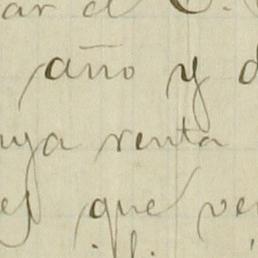 ar el C.
año y d
uya renta
es que ve